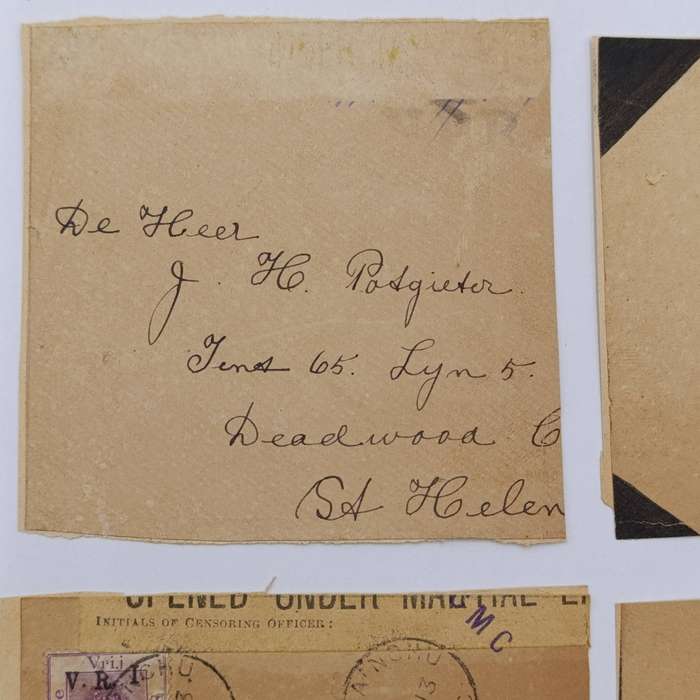 De Heer
J. H. Potgieter.
Tent 65. Lyn 5.
Deadwood C
St Helen
OPENED UNDER MARTIAL
INITIALS OF CENSORING OFFICER:
MC
Vrij
V. R. I.